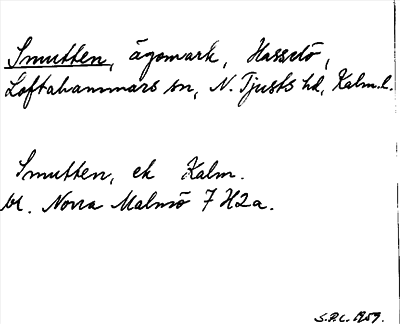 Smutten, ägomark, Hasselö,
Loftahammars sn, N. Tjusts hd, Kalm.l.
Smutten, ek Kalm.
bl. Norra Malmö 7 H2a.
S.P.C. 1959.